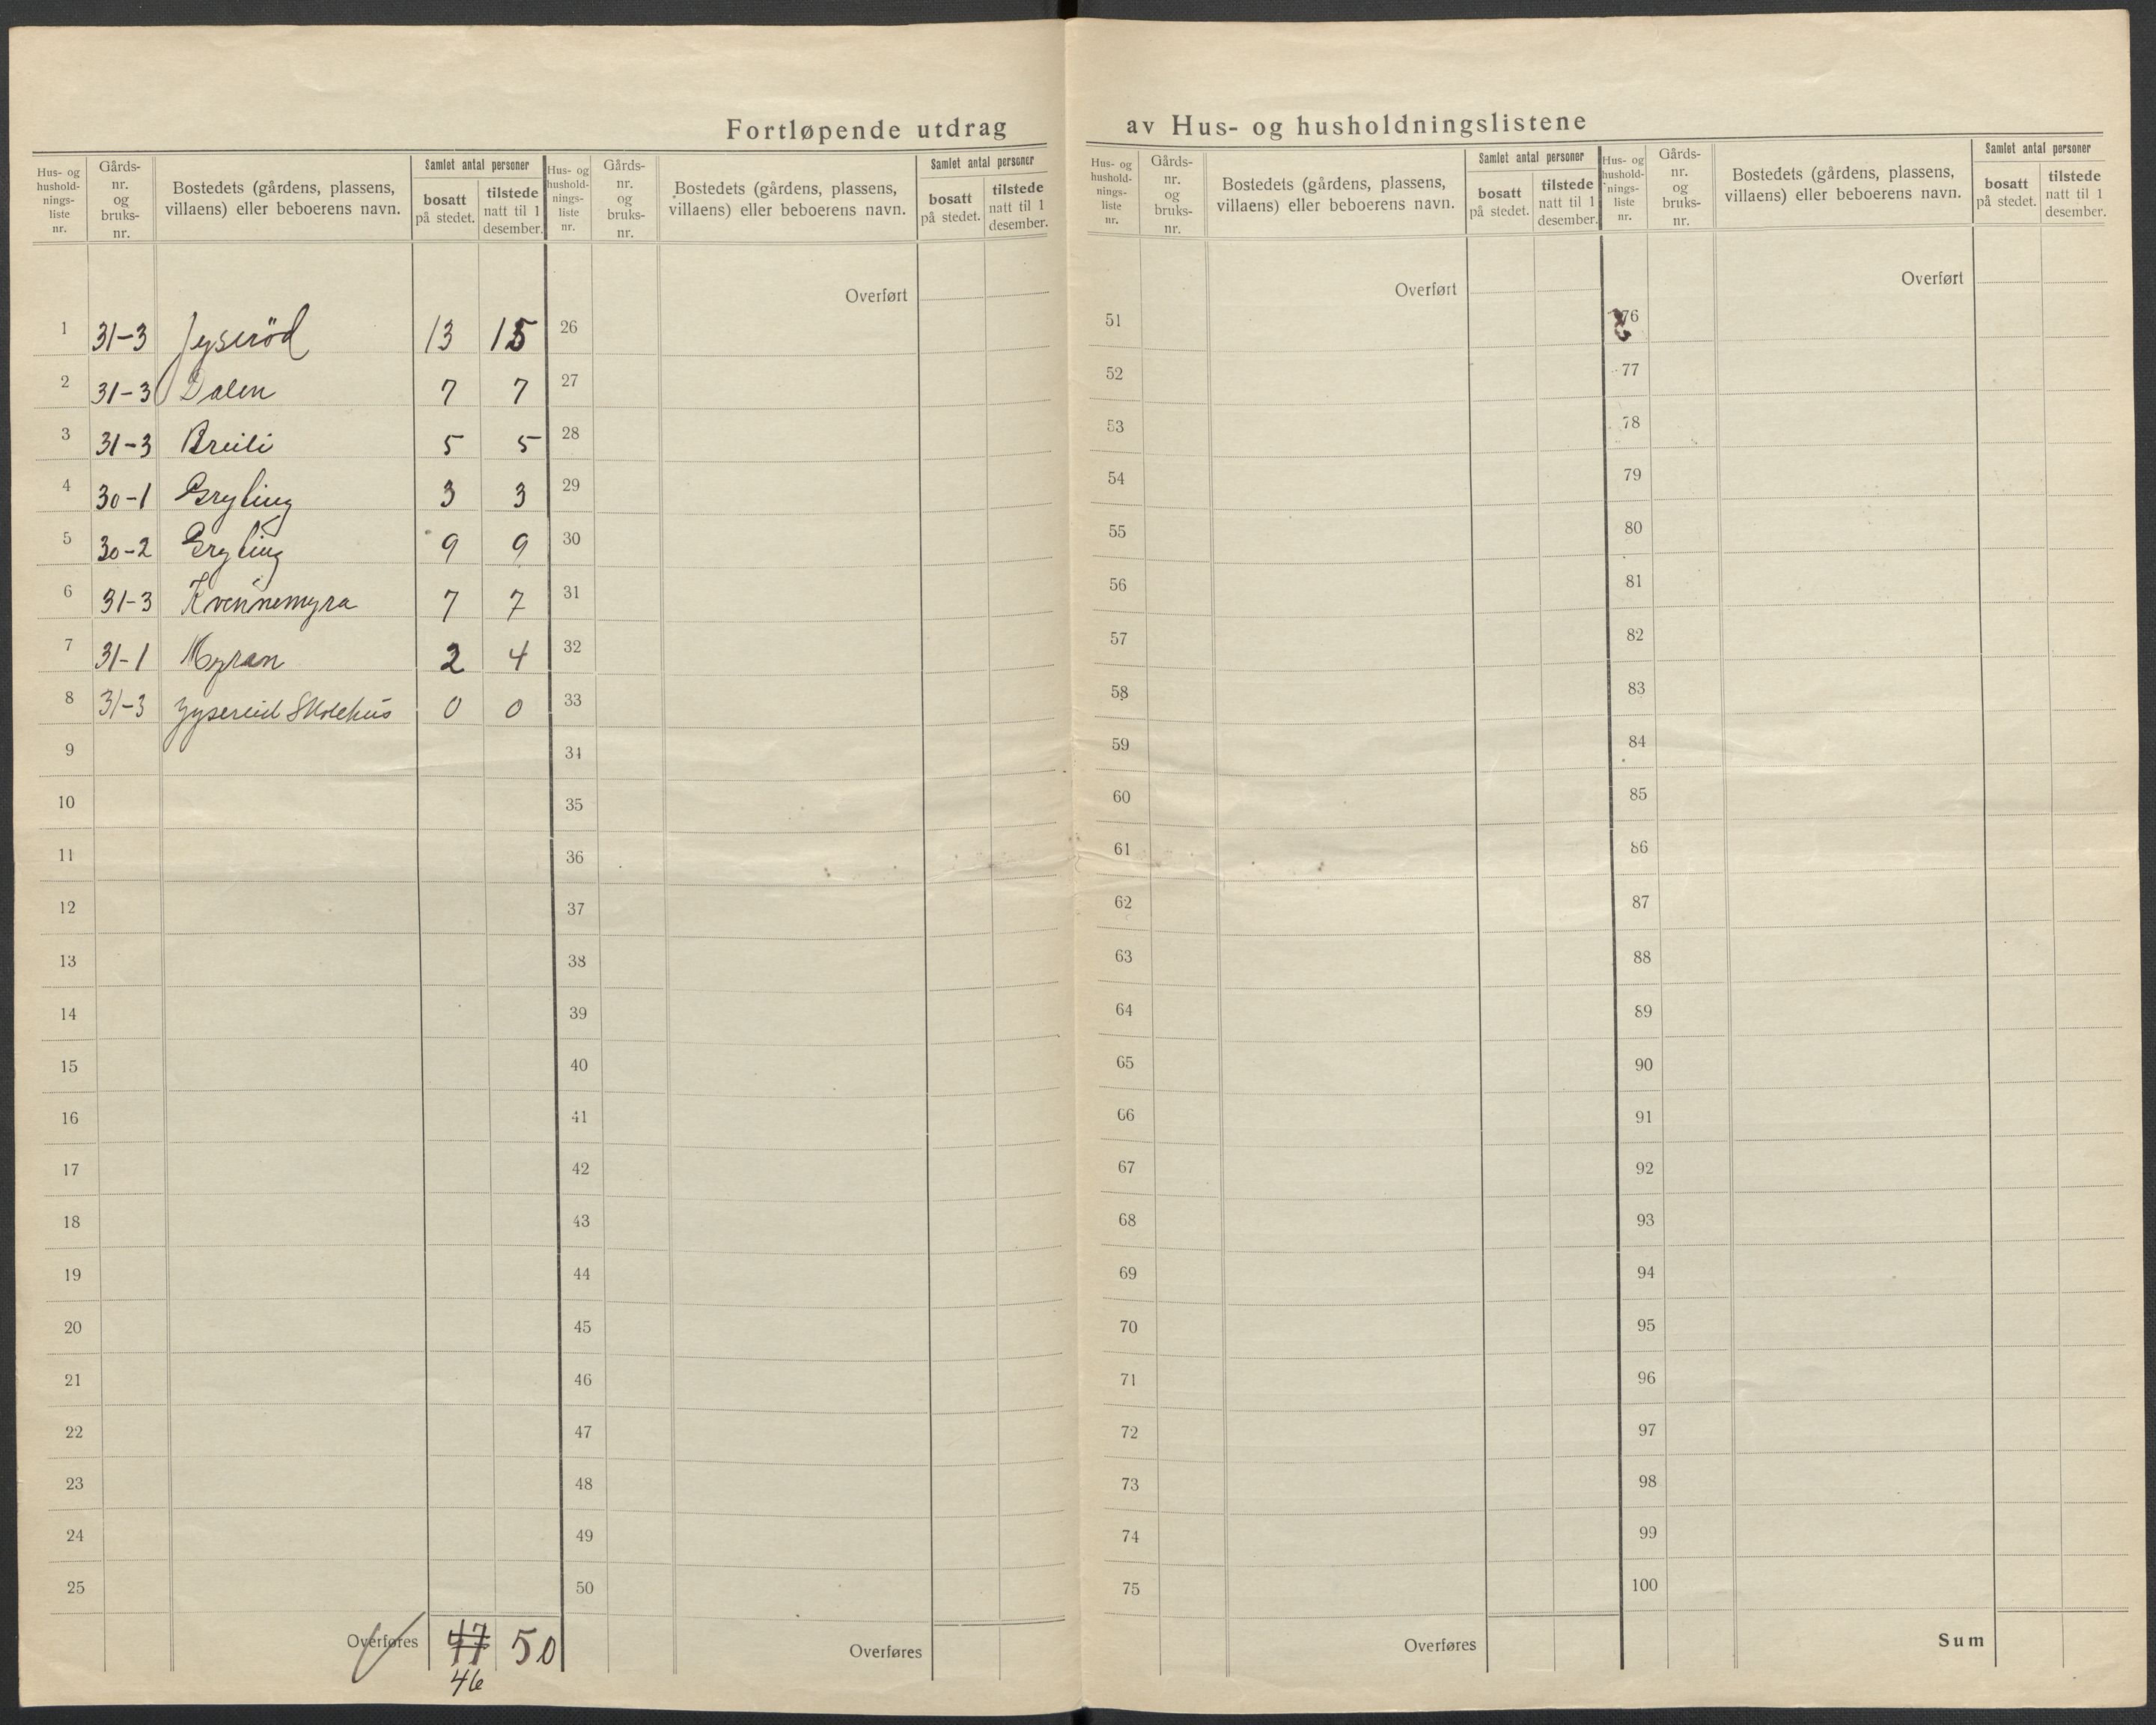 Fortløpende utdrag av Hus- og husholdningslistene
Hus- og hushold- nings- liste nr. Gårds- nr. og bruks- nr. Bostedets (gårdens, plassens, villaens) eller beboerens navn. Samlet antal personer bosatt på stedet. tilstede natt til 1 desember.
1 31-3 Jyseröd 13 15
2 31-3 Dalen 7 7
3 31-3 Breili 5 5
4 30-1 Gryting 3 3
5 30-2 Gryting 9 9
6 31-3 Kvennemyra 7 7
7 31-1 Myran 2 4
8 31-3 Jysereid Skolehus 0 0
9
10
11
12
13
14
15
16
17
18
19
20
21
22
23
24
25
Overføres 47 50
46
Hus- og hushold- nings- liste nr. Gårds- nr. og bruks- nr. Bostedets (gårdens, plassens, villaens) eller beboerens navn. Samlet antal personer bosatt på stedet. tilstede natt til 1 desember.
Overført
26
27
28
29
30
31
32
33
34
35
36
37
38
39
40
41
42
43
44
45
46
47
48
49
50
Overføres
Hus- og hushold- nings- liste nr. Gårds- nr. og bruks- nr. Bostedets (gårdens, plassens, villaens) eller beboerens navn. Samlet antal personer bosatt på stedet. tilstede natt til 1 desember.
Overført
51
52
53
54
55
56
57
58
59
60
61
62
63
64
65
66
67
68
69
70
71
72
73
74
75
Overføres
Hus- og hushold- nings- liste nr. Gårds- nr. og bruks- nr. Bostedets (gårdens, plassens, villaens) eller beboerens navn. Samlet antal personer bosatt på stedet. tilstede natt til 1 desember.
Overført
76
77
78
79
80
81
82
83
84
85
86
87
88
89
90
91
92
93
94
95
96
97
98
99
100
Sum